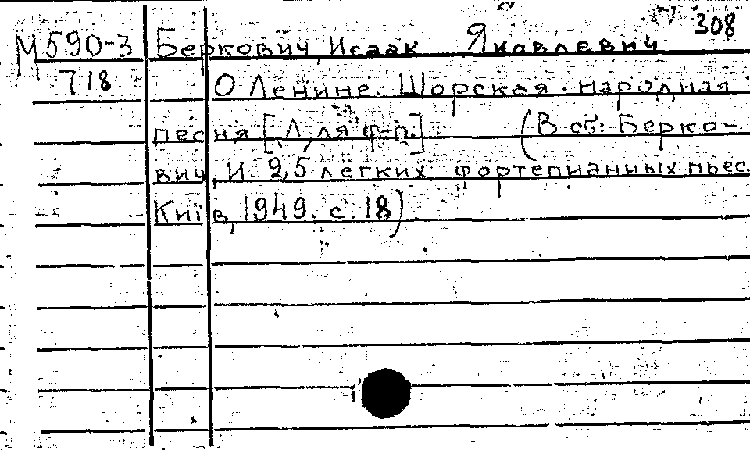 308
М590-3 Беркович, Исаак Яковлевич
718 О Ленине. Шорская народная
песня [Для ф-п.] (В сб: Берко-
вич, И. 25 легких фортепианных пьес.
Киïв, 1949. с. 18)